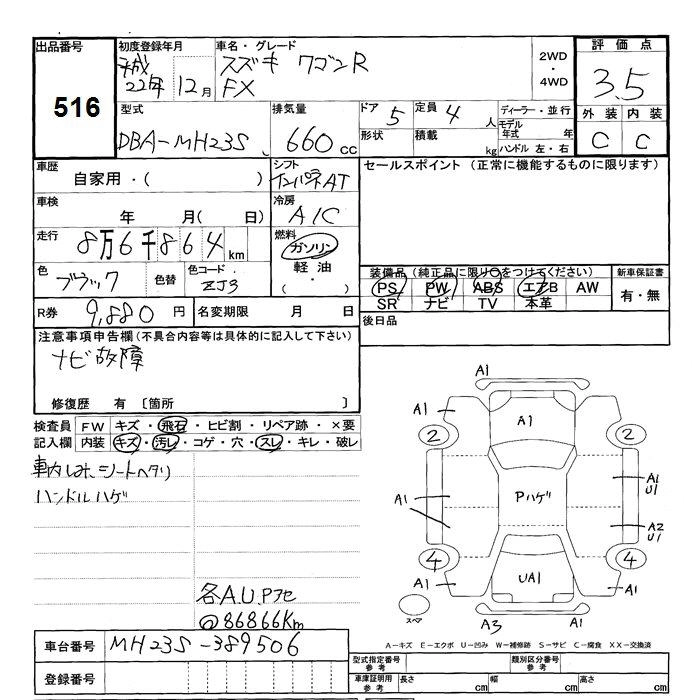 出品番号
516
初度登録年月
平成
22年 12月
車名・グレード
スズキ ワゴンR
FX
2WD
・
4WD
評価点
3.5
外装 内装
C C
型式
DBA-MH23S
排気量
660 cc
ドア 5
定員 4 人
形状
積載 kg
ディーラー・並行
モデル
年式 年
ハンドル 左・右
車歴
自家用・( )
シフト
インパネAT
セールスポイント (正常に機能するものに限ります)
車検
年 月( 日)
冷房
A/C
走行
8万6千864km
燃料
ガソリン
軽油
・( )
色
ブラック
色替
色コード
ZJ3
装備品 (純正品に限り○をつけてください)
PS PW ABS エアB AW
SR ナビ TV 本革
新車保証書
有・無
R券 9,880 円
名変期限 月 日
後日品
注意事項申告欄(不具合内容等は具体的に記入して下さい)
ナビ故障
修復歴 有 〔箇所 〕
検査員 FW キズ・飛石・ヒビ割・リペア跡・×要
記入欄 内装 キズ・汚レ・コゲ・穴・スレ・キレ・破レ
シートヘタリ
ハンドルハゲ
各A.U.P
@86866Km
A1
A1
A1
A1
2
2
A1
Pハゲ
A1
U1
A2
U1
4
4
A1
UA1
A1
スペア
A3
A1
A-キズ E-エクボ U-凹み W-補修跡 S-サビ C-腐食 XX-交換済
車台番号 MH23S-389506
登録番号
型式指定番号
参考
類別区分番号
参考
車庫証明用
参考
長さ cm
幅 cm
高さ cm